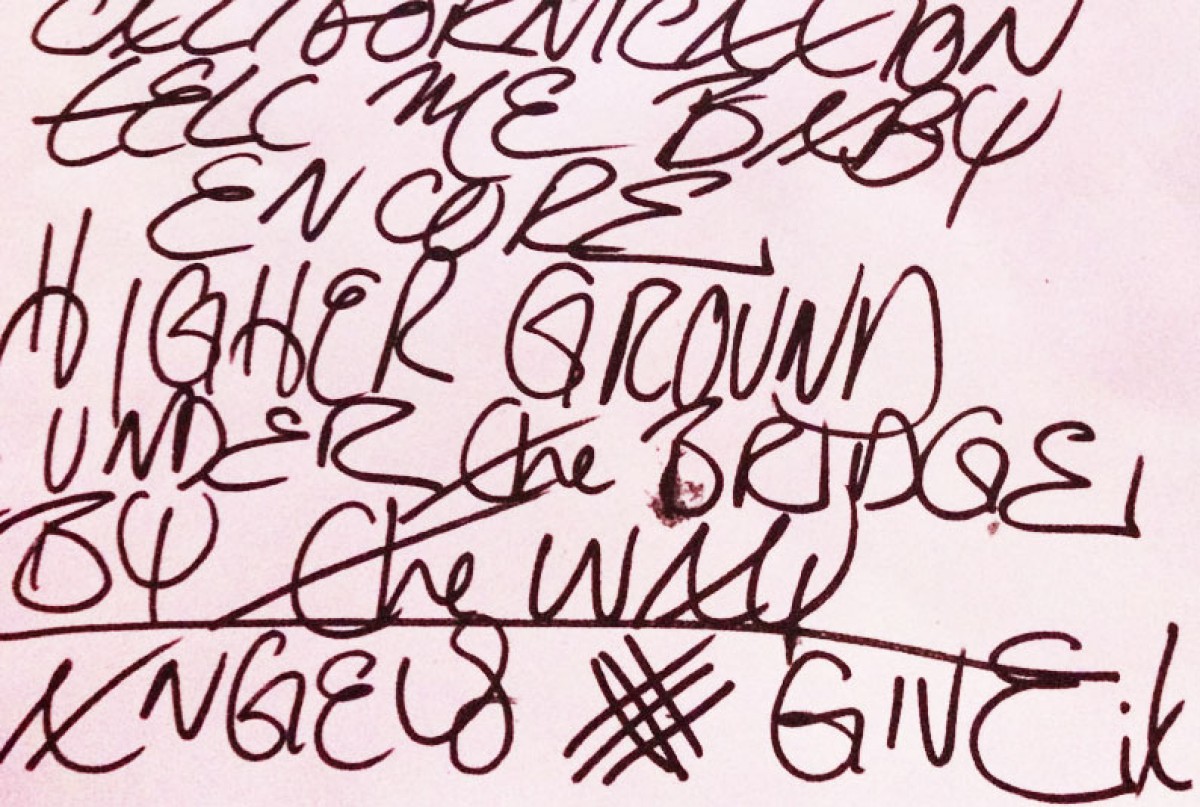 CALIFORNICATION
tELL ME BABY
ENCORE
HIGHER GROUND
UNDER the BRIDGE
BY the WAY
ANGELS GIVE it